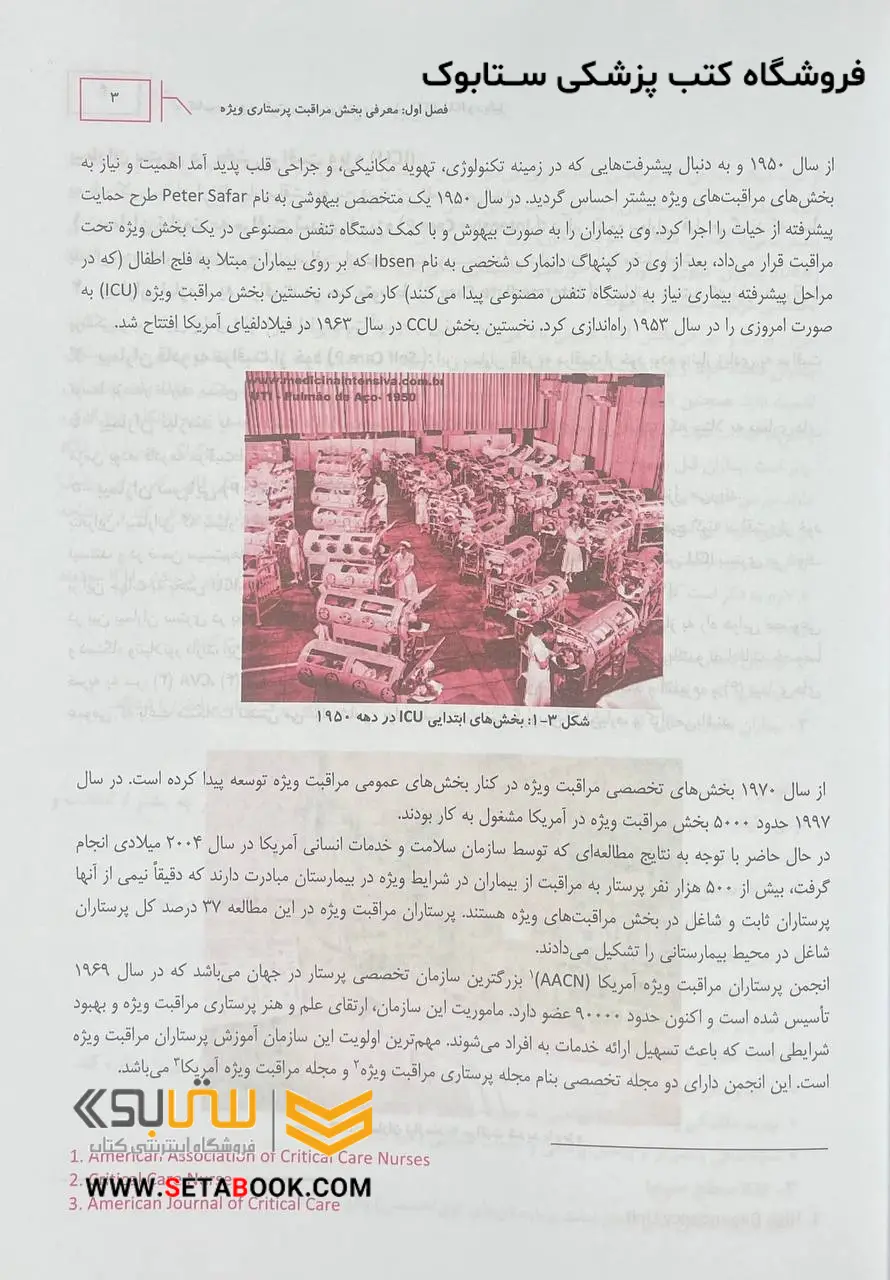 فروشگاه کتب پزشکی ستابوک
۳
فصل اول: معرفی بخش مراقبت پرستاری ویژه
از سال ۱۹۵۰ و به دنبال پیشرفت‌هایی که در زمینه تکنولوژی، تهویه مکانیکی، و جراحی قلب پدید آمد اهمیت و نیاز به
بخش‌های مراقبت‌های ویژه بیشتر احساس گردید. در سال ۱۹۵۰ یک متخصص بیهوشی به نام Peter Safar طرح حمایت
پیشرفته از حیات را اجرا کرد. وی بیماران را به صورت بیهوش و با کمک دستگاه تنفس مصنوعی در یک بخش ویژه تحت
مراقبت قرار می‌داد، بعد از وی در کپنهاگ دانمارک شخصی به نام Ibsen که بر روی بیماران مبتلا به فلج اطفال (که در
مراحل پیشرفته بیماری نیاز به دستگاه تنفس مصنوعی پیدا می‌کنند) کار می‌کرد، نخستین بخش مراقبت ویژه (ICU) به
صورت امروزی را در سال ۱۹۵۳ راه‌اندازی کرد. نخستین بخش CCU در سال ۱۹۶۳ در فیلادلفیای آمریکا افتتاح شد.
www.medicinaintensiva.com.br
UTI - Pulmão de Aço- 1950
شکل ۳-۱: بخش‌های ابتدایی ICU در دهه ۱۹۵۰
از سال ۱۹۷۰ بخش‌های تخصصی مراقبت ویژه در کنار بخش‌های عمومی مراقبت ویژه توسعه پیدا کرده است. در سال
۱۹۹۷ حدود ۵۰۰۰ بخش مراقبت ویژه در آمریکا مشغول به کار بودند.
در حال حاضر با توجه به نتایج مطالعه‌ای که توسط سازمان سلامت و خدمات انسانی آمریکا در سال ۲۰۰۴ میلادی انجام
گرفت، بیش از ۵۰۰ هزار نفر پرستار به مراقبت از بیماران در شرایط ویژه در بیمارستان مبادرت دارند که دقیقاً نیمی از آنها
پرستاران ثابت و شاغل در بخش مراقبت‌های ویژه هستند. پرستاران مراقبت ویژه در این مطالعه ۳۷ درصد کل پرستاران
شاغل در محیط بیمارستانی را تشکیل می‌دادند.
انجمن پرستاران مراقبت ویژه آمریکا (AACN)۱ بزرگترین سازمان تخصصی پرستار در جهان می‌باشد که در سال ۱۹۶۹
تأسیس شده است و اکنون حدود ۹۰۰۰۰ عضو دارد. ماموریت این سازمان، ارتقای علم و هنر پرستاری مراقبت ویژه و بهبود
شرایطی است که باعث تسهیل ارائه خدمات به افراد می‌شوند. مهم‌ترین اولویت این سازمان آموزش پرستاران مراقبت ویژه
است. این انجمن دارای دو مجله تخصصی بنام مجله پرستاری مراقبت ویژه۲ و مجله مراقبت ویژه آمریکا۳ می‌باشد.
ستابوک
فروشگاه اینترنتی کتاب
1. American Association of Critical Care Nurses
2. Critical Care Nurse
WWW.SETABOOK.COM
3. American Journal of Critical Care